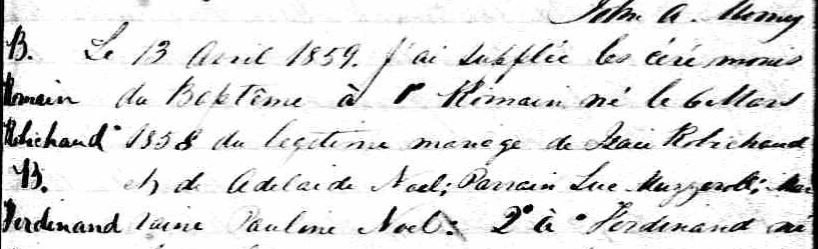 John A. 
B. Le 13 Avril 1859. J'ai supplée les cérémonies
Romain du Baptême à 1° Romain né le 6 Mars
Robichaud 1858 du legitime mariage de Isaie Robichaud
B. et de Adelaide Noel; Parrain Luc Mazzerolle; Mar
Ferdinand raine Pauline Noel: 2° à Ferdinand né